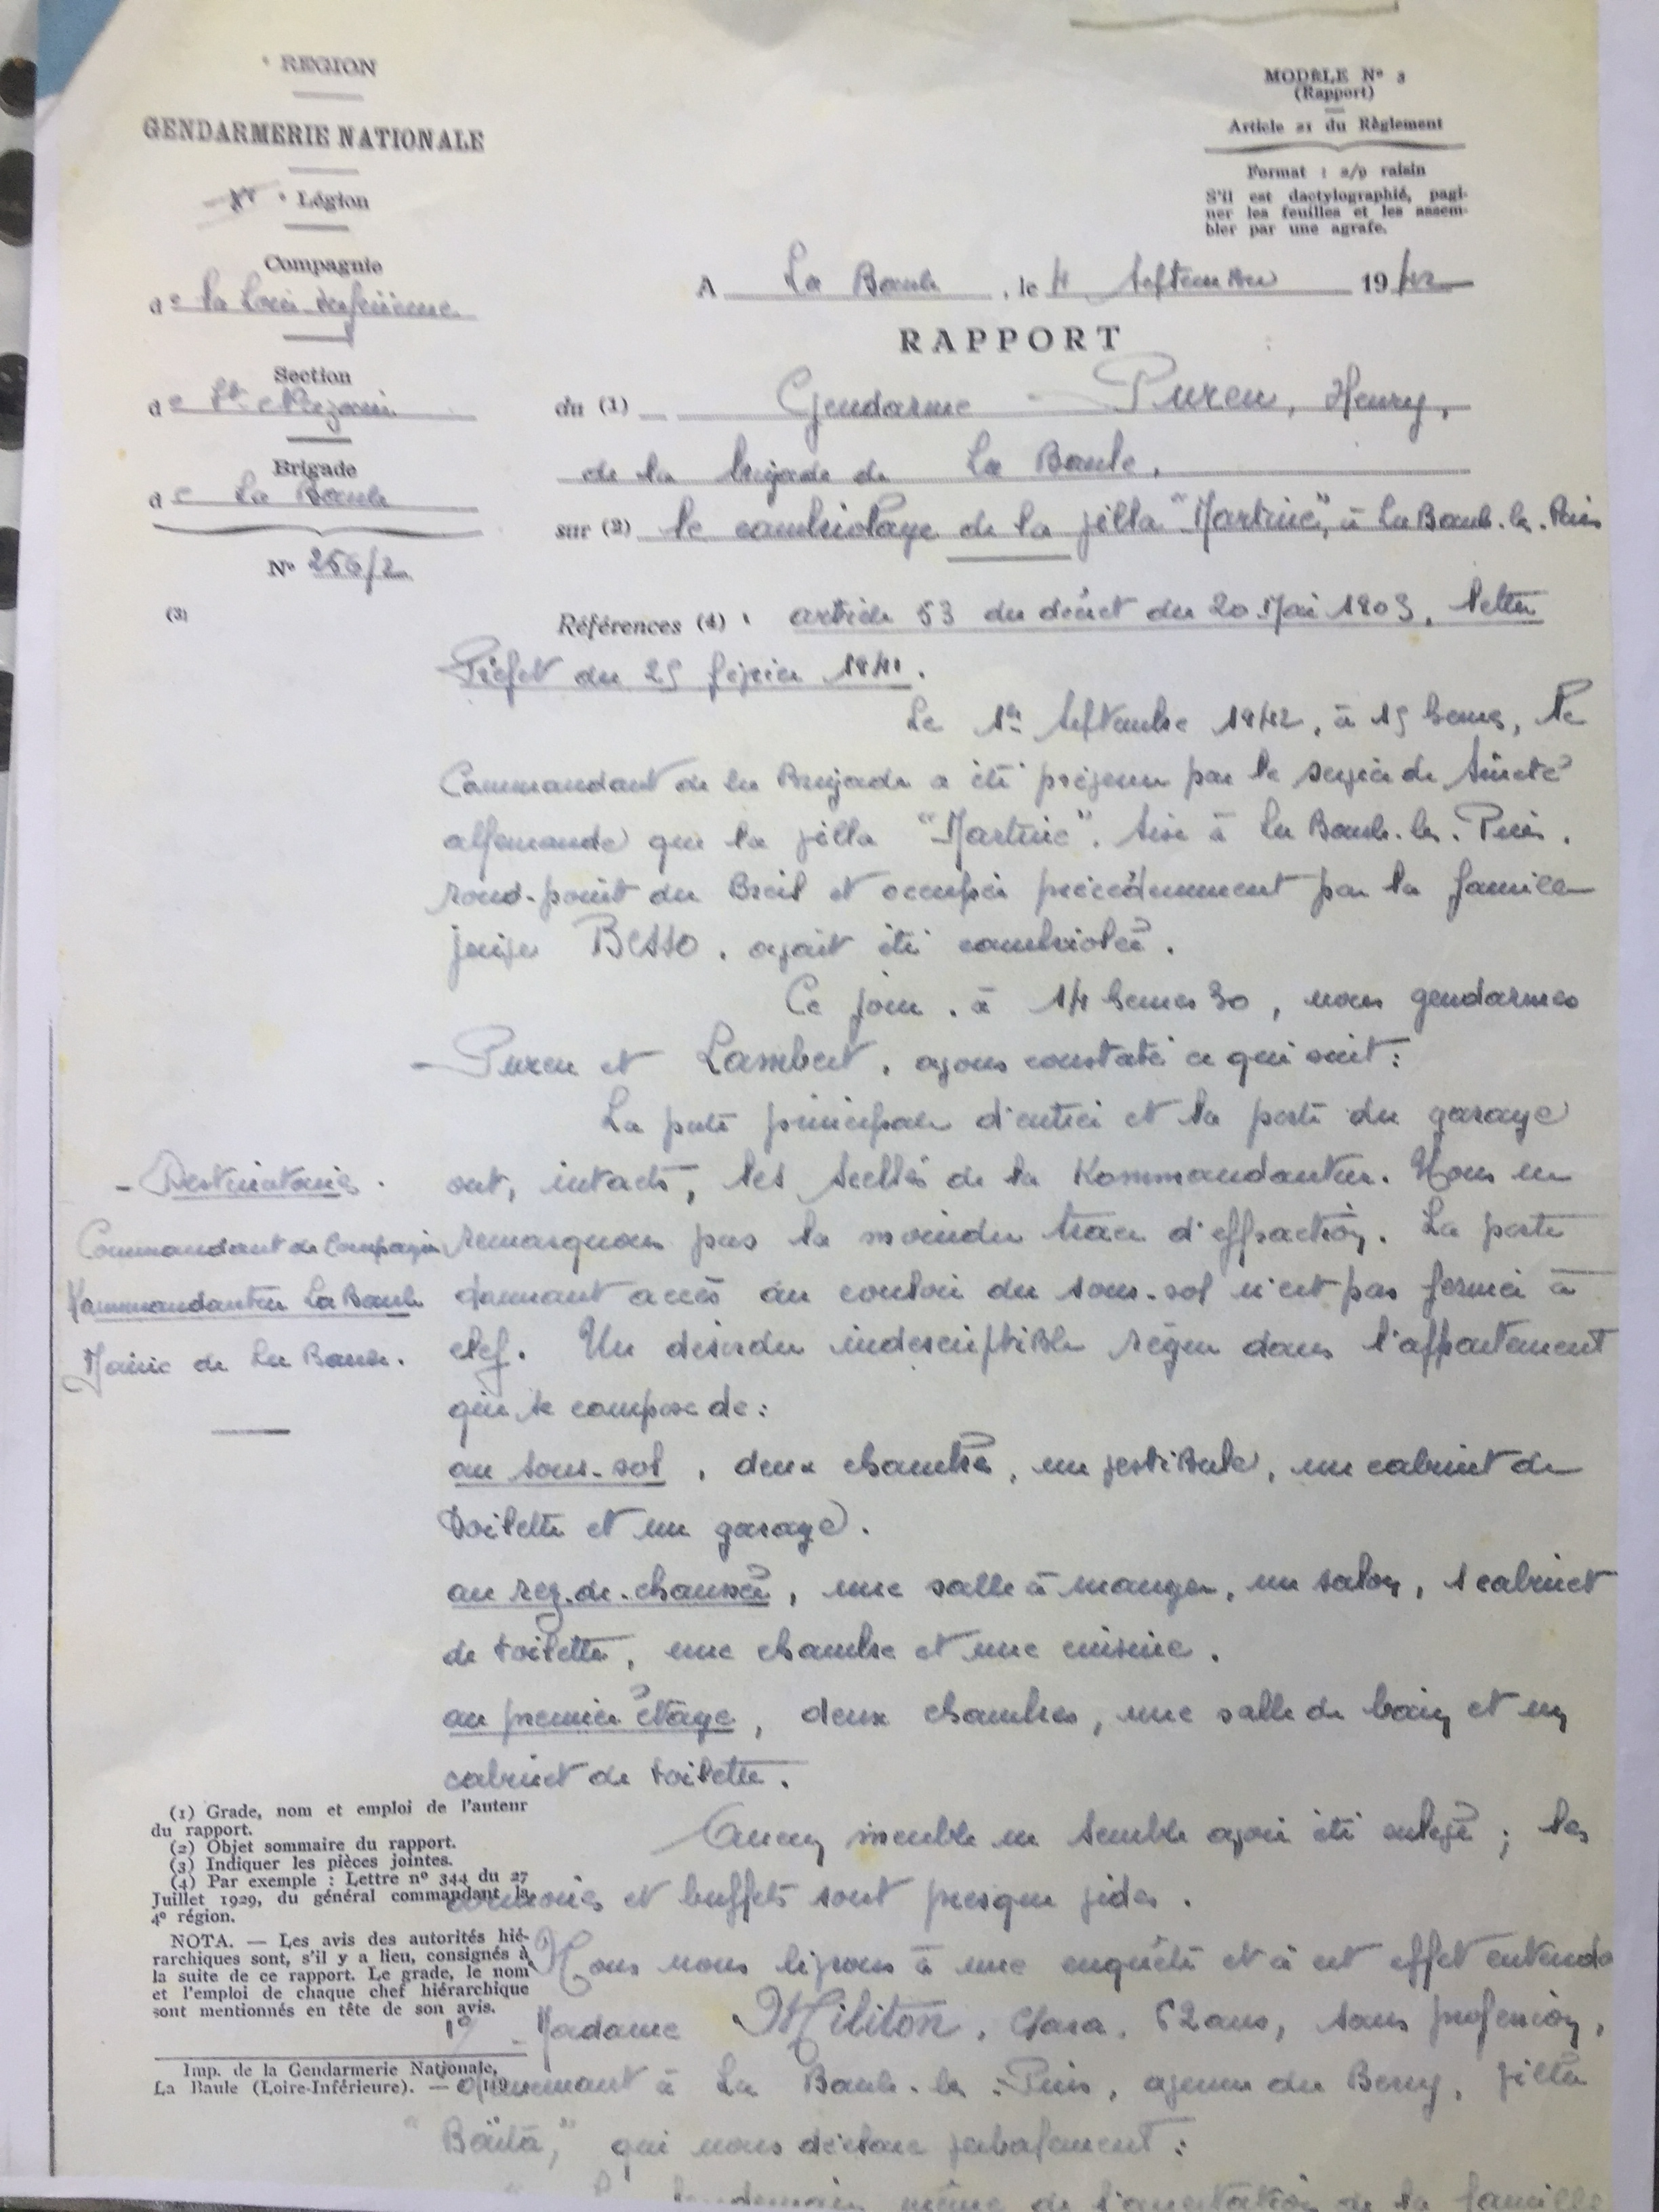 ° REGION
GENDARMERIE NATIONALE
° Légion
Compagnie
de la Loire-Inférieure
Section
de St Nazaire
Brigade
de La Baule
N° 256/2
(3)
MODÈLE N° 3
(Rapport)
Article 21 du Règlement
Format : 2/p raisin
S'il est dactylographié, pagi-
ner les feuilles et les assem-
bler par une agrafe.
A La Baule, le 4 Septembre 1942
RAPPORT
du (1) Gendarme Puren, Henry,
de la brigade de La Baule,
sur (2) le cambriolage de la villa "Martine", à La Baule-les-Pins
Références (4) : article 53 du décret du 20 Mai 1903, lettre
Préfet du 25 février 1941.
Le 1er Septembre 1942, à 15 heures, le
Commandant de la Brigade a été prévenu par le service de Sûreté
allemande que la villa "Martine", sise à La Baule-les-Pins,
rond-point du Breil et occupée précédemment par la famille
juive BESSO, avait été cambriolée.
Ce jour, à 14 heures 30, nous gendarmes
Puren et Lambert, avons constaté ce qui suit :
La porte principale d'entrée et la porte du garage
ont, intacts, les scellés de la Kommandantur. Nous ne
remarquons pas la moindre trace d'effraction. La porte
donnant accès au couloir du sous-sol n'est pas fermée à
clef. Un désordre indescriptible règne dans l'appartement
qui se compose de :
au sous-sol, deux chambres, un vestibule, un cabinet de
toilette et un garage.
au rez-de-chaussée, une salle à manger, un salon, 1 cabinet
de toilette, une chambre et une cuisine.
au premier étage, deux chambres, une salle de bain et un
cabinet de toilette.
Aucun meuble ne semble avoir été enlevé ; les
armoires et buffets sont presque vides.
Nous nous livrons à une enquête et à cet effet entendons
1° - Madame Militon, Clara, 62 ans, sans profession,
demeurant à La Baule-les-Pins, avenue du Berry, villa
qui nous déclare verbalement :
lendemain même de l'arrestation de la famille
- Destinataires.
Commandant de Compagnie
Kommandantur La Baule
Mairie de La Baule.
(1) Grade, nom et emploi de l'auteur
du rapport.
(2) Objet sommaire du rapport.
(3) Indiquer les pièces jointes.
(4) Par exemple : Lettre n° 344 du 27
Juillet 1929, du général commandant la
4e région.
NOTA. — Les avis des autorités hié-
rarchiques sont, s'il y a lieu, consignés à
la suite de ce rapport. Le grade, le nom
et l'emploi de chaque chef hiérarchique
sont mentionnés en tête de son avis.
Imp. de la Gendarmerie Nationale,
La Baule (Loire-Inférieure). —